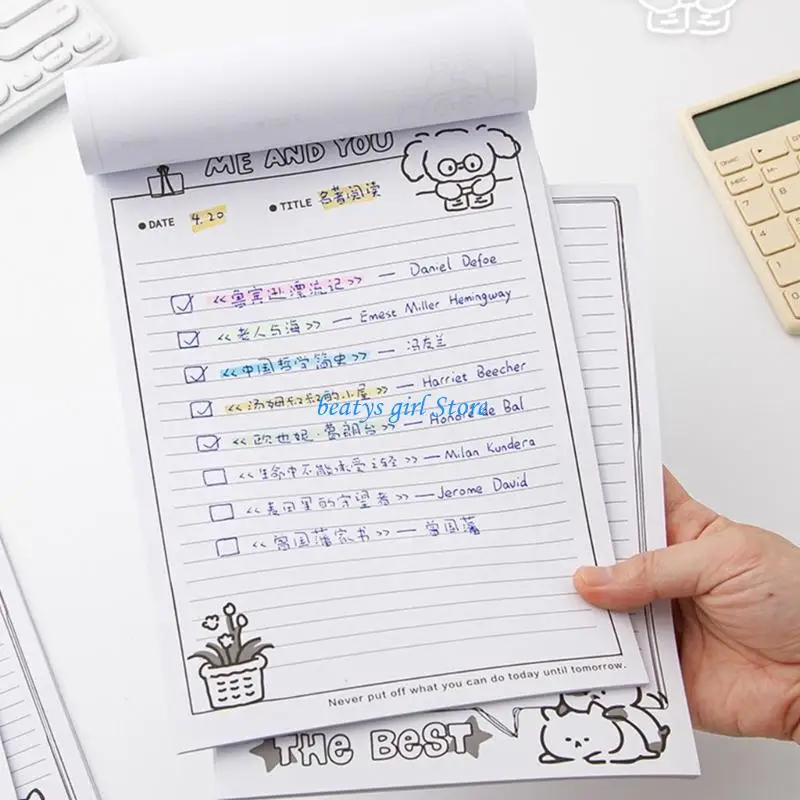 ME AND YOU
DATE 4.20 TITLE 名著阅读
《鲁宾逊漂流记》 — Daniel Defoe
《老人与海》 — Ernest Miller Hemingway
《中国哲学简史》 — 冯友兰
《汤姆叔叔的小屋》 — Harriet Beecher
beatys girl Store
《欧也妮·葛朗台》 — Honoré de Bal
《生命中不能承受之轻》 — Milan Kundera
《麦田里的守望者》 — Jerome David
《曾国藩家书》 — 曾国藩
Never put off what you can do today until tomorrow.
THE BEST